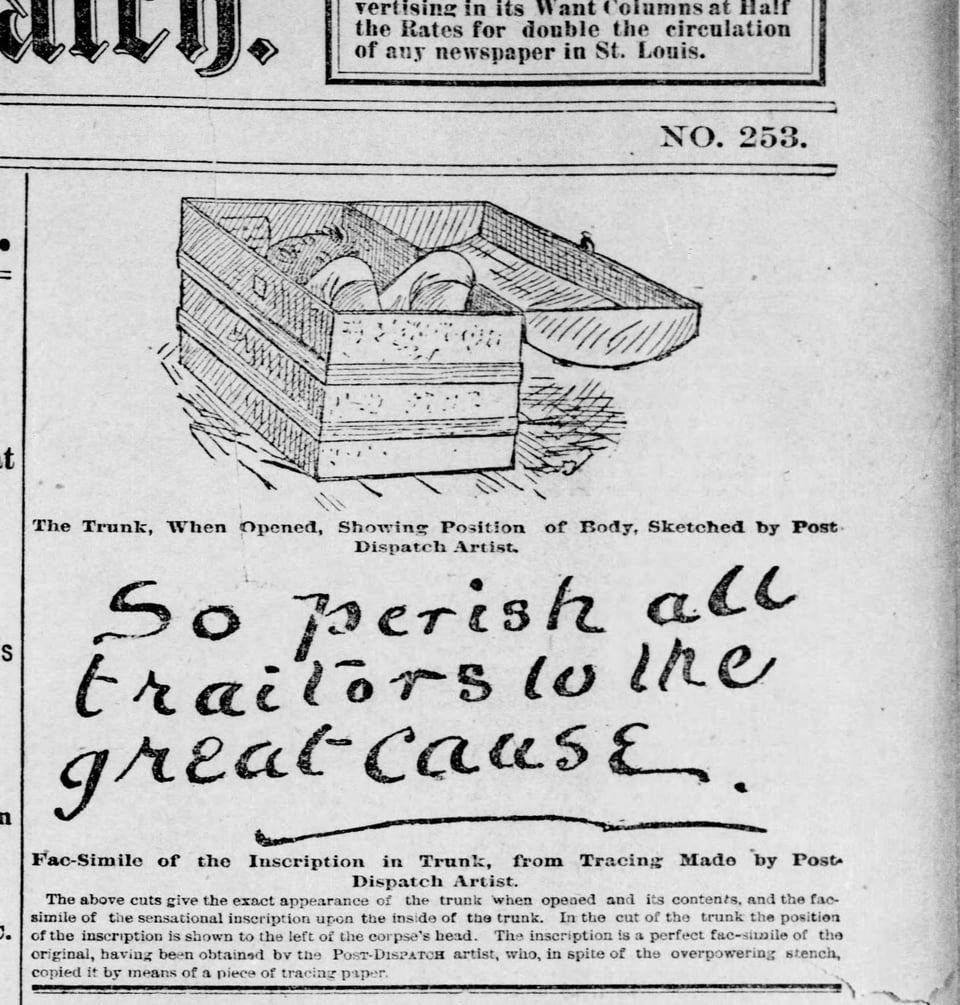 vertising in its Want Columns at Half
the Rates for double the circulation
of any newspaper in St. Louis.
NO. 253.
The Trunk, When Opened, Showing Position of Body, Sketched by Post
Dispatch Artist.
So perish all
traitors to the
great cause.
Fac-Simile of the Inscription in Trunk, from Tracing Made by Post-
Dispatch Artist.
The above cuts give the exact appearance of the trunk when opened and its contents, and the fac-
simile of the sensational inscription upon the inside of the trunk. In the cut of the trunk the position
of the inscription is shown to the left of the corpse's head. The inscription is a perfect fac-simile of the
original, having been obtained by the POST-DISPATCH artist, who, in spite of the overpowering stench,
copied it by means of a piece of tracing paper.